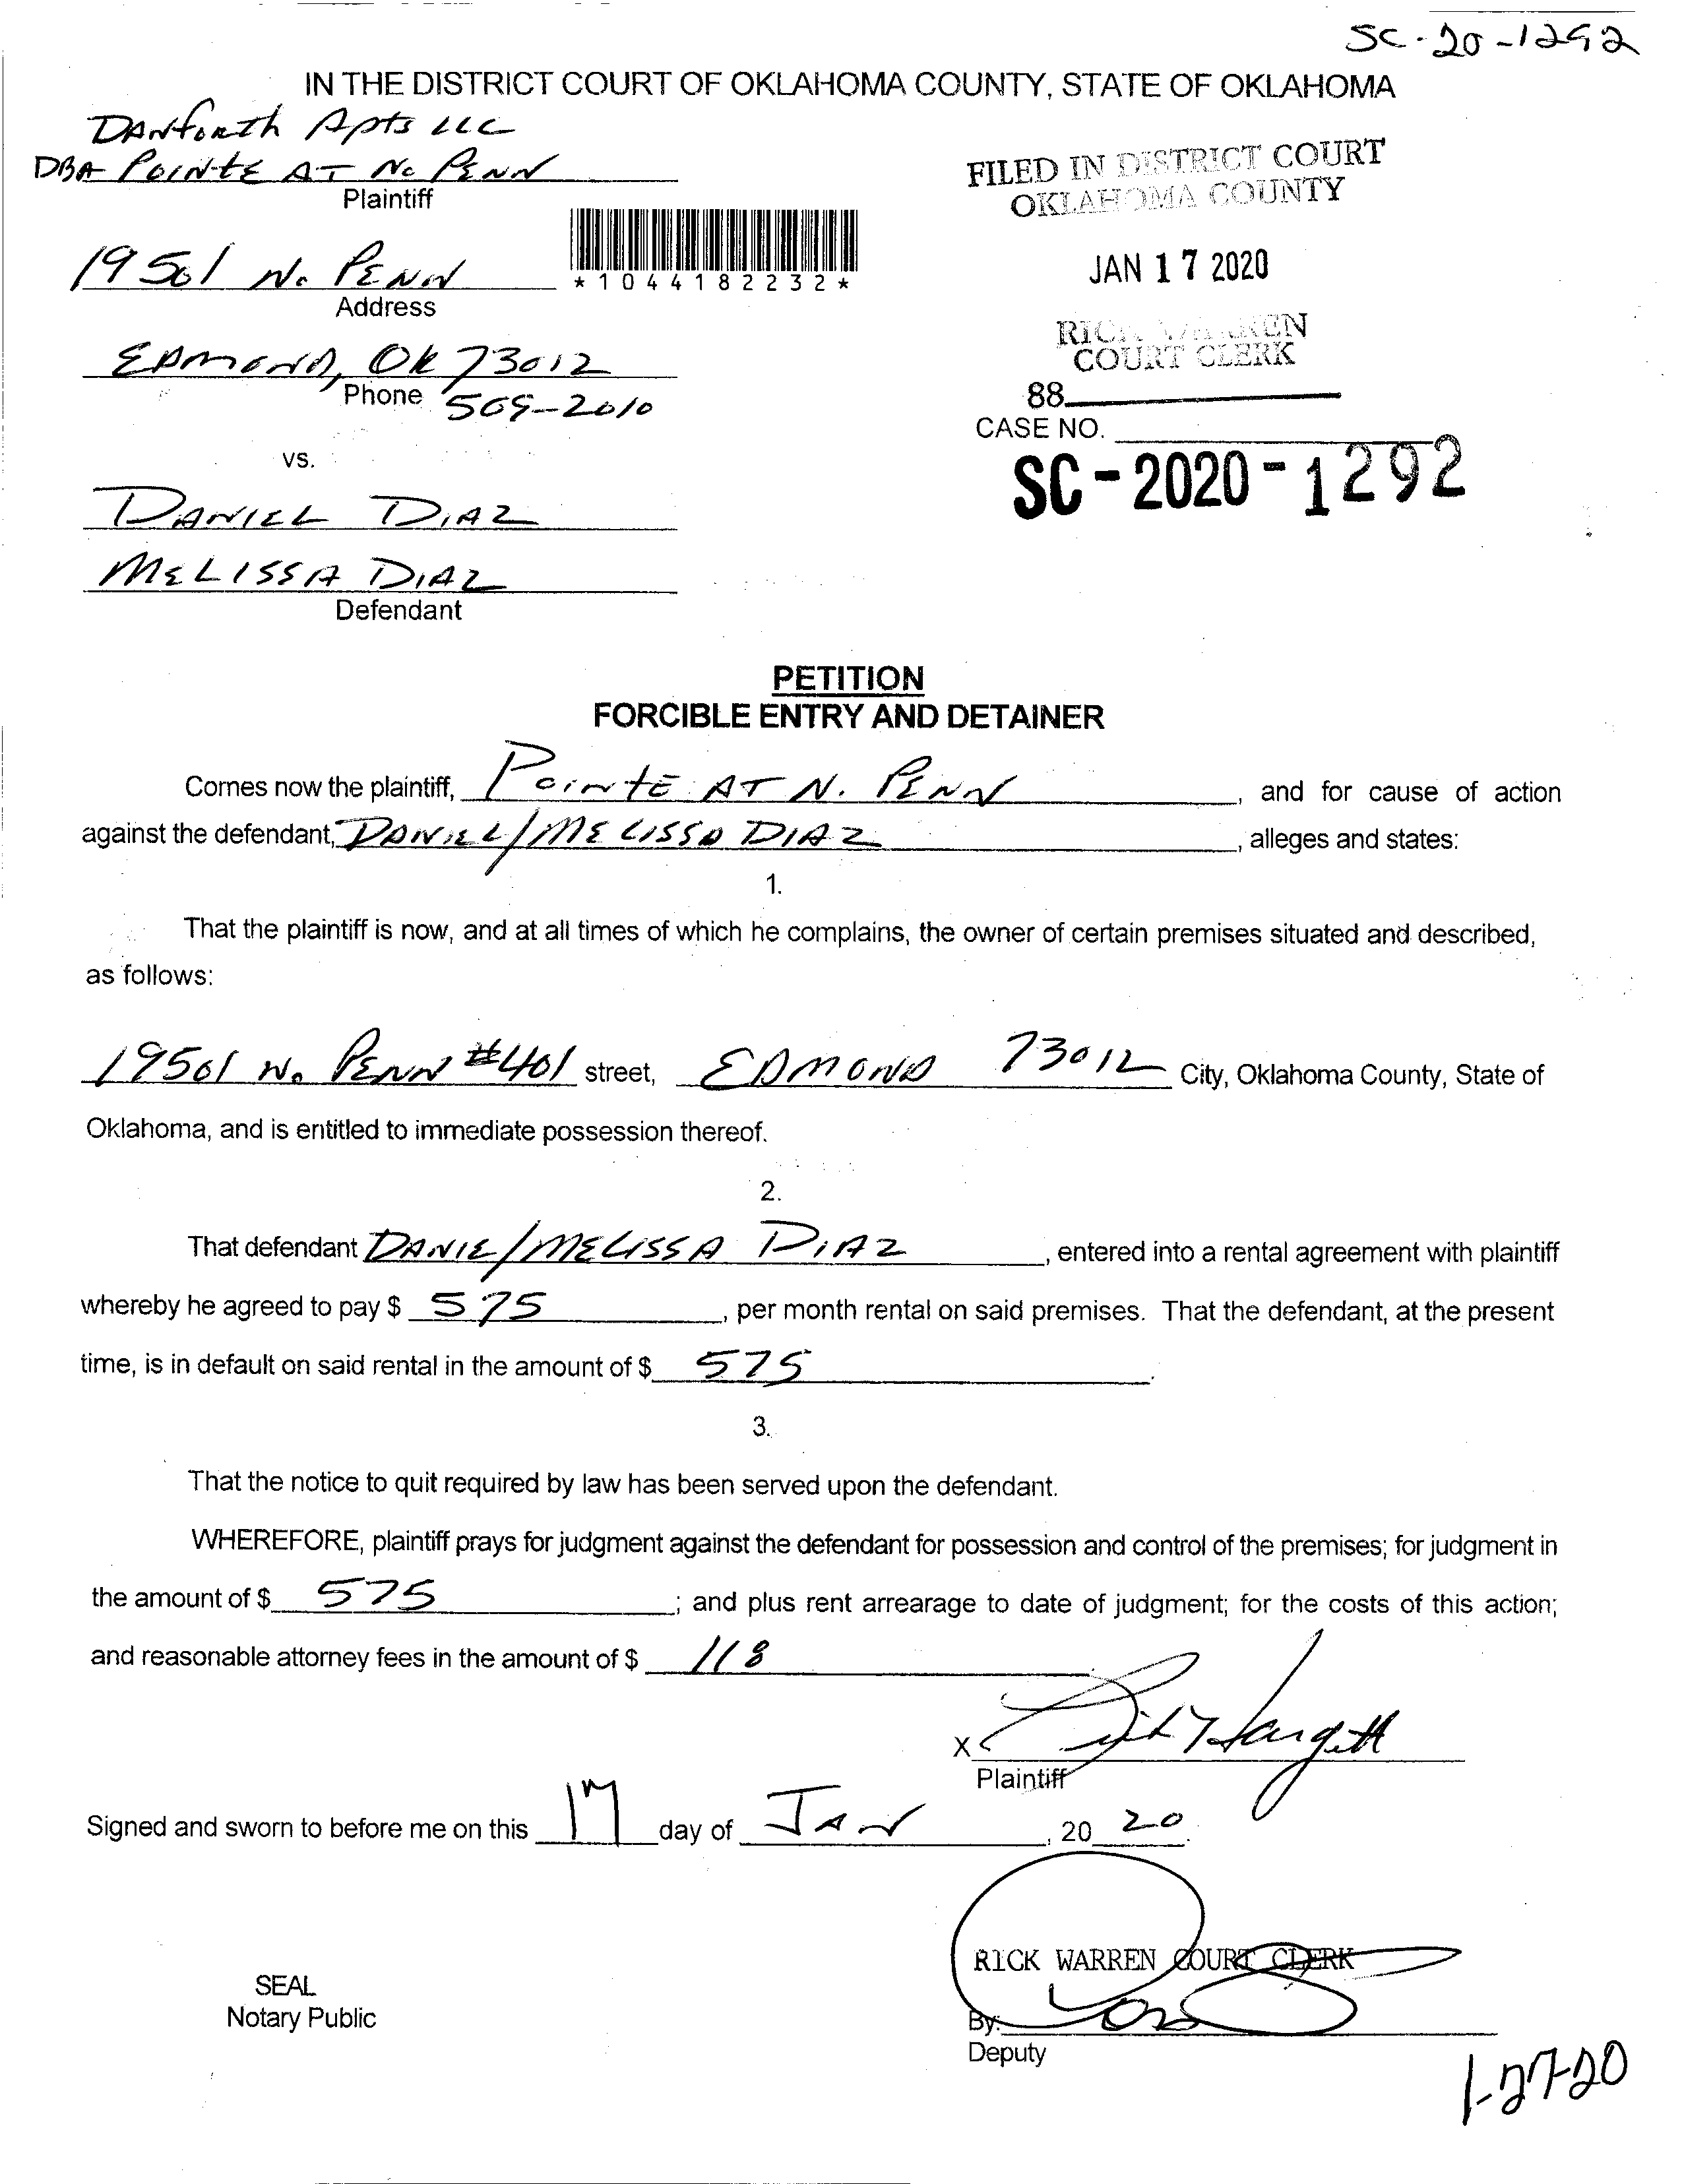 SC-20-1292
IN THE DISTRICT COURT OF OKLAHOMA COUNTY, STATE OF OKLAHOMA
DANforth Apts LLC
DBA POINtE AT No PENN
Plaintiff
FILED IN DISTRICT COURT
OKLAHOMA COUNTY
19501 No. PENN
Address
*1044182232*
JAN 17 2020
RICK WARREN
COURT CLERK
EDMOND, OK 73012
Phone 509-2010
88
CASE NO.
SC-2020-1292
vs.
DANIEL DIAZ
MELISSA DIAZ
Defendant
PETITION
FORCIBLE ENTRY AND DETAINER
Comes now the plaintiff, POINtE AT N. PENN, and for cause of action
against the defendant, DANIEL/MELISSA DIAZ, alleges and states:
1.
That the plaintiff is now, and at all times of which he complains, the owner of certain premises situated and described,
as follows:
19501 No. PENN #401 street, EDMOND 73012 City, Oklahoma County, State of
Oklahoma, and is entitled to immediate possession thereof.
2.
That defendant DANIE/MELISSA DIAZ, entered into a rental agreement with plaintiff
whereby he agreed to pay $ 575, per month rental on said premises. That the defendant, at the present
time, is in default on said rental in the amount of $ 575.
3.
That the notice to quit required by law has been served upon the defendant.
WHEREFORE, plaintiff prays for judgment against the defendant for possession and control of the premises; for judgment in
the amount of $ 575; and plus rent arrearage to date of judgment; for the costs of this action;
and reasonable attorney fees in the amount of $ 118.
X
Plaintiff
Signed and sworn to before me on this 17 day of JAN, 20 20.
RICK WARREN COURT CLERK
SEAL
Notary Public
By:
Deputy
1-27-20